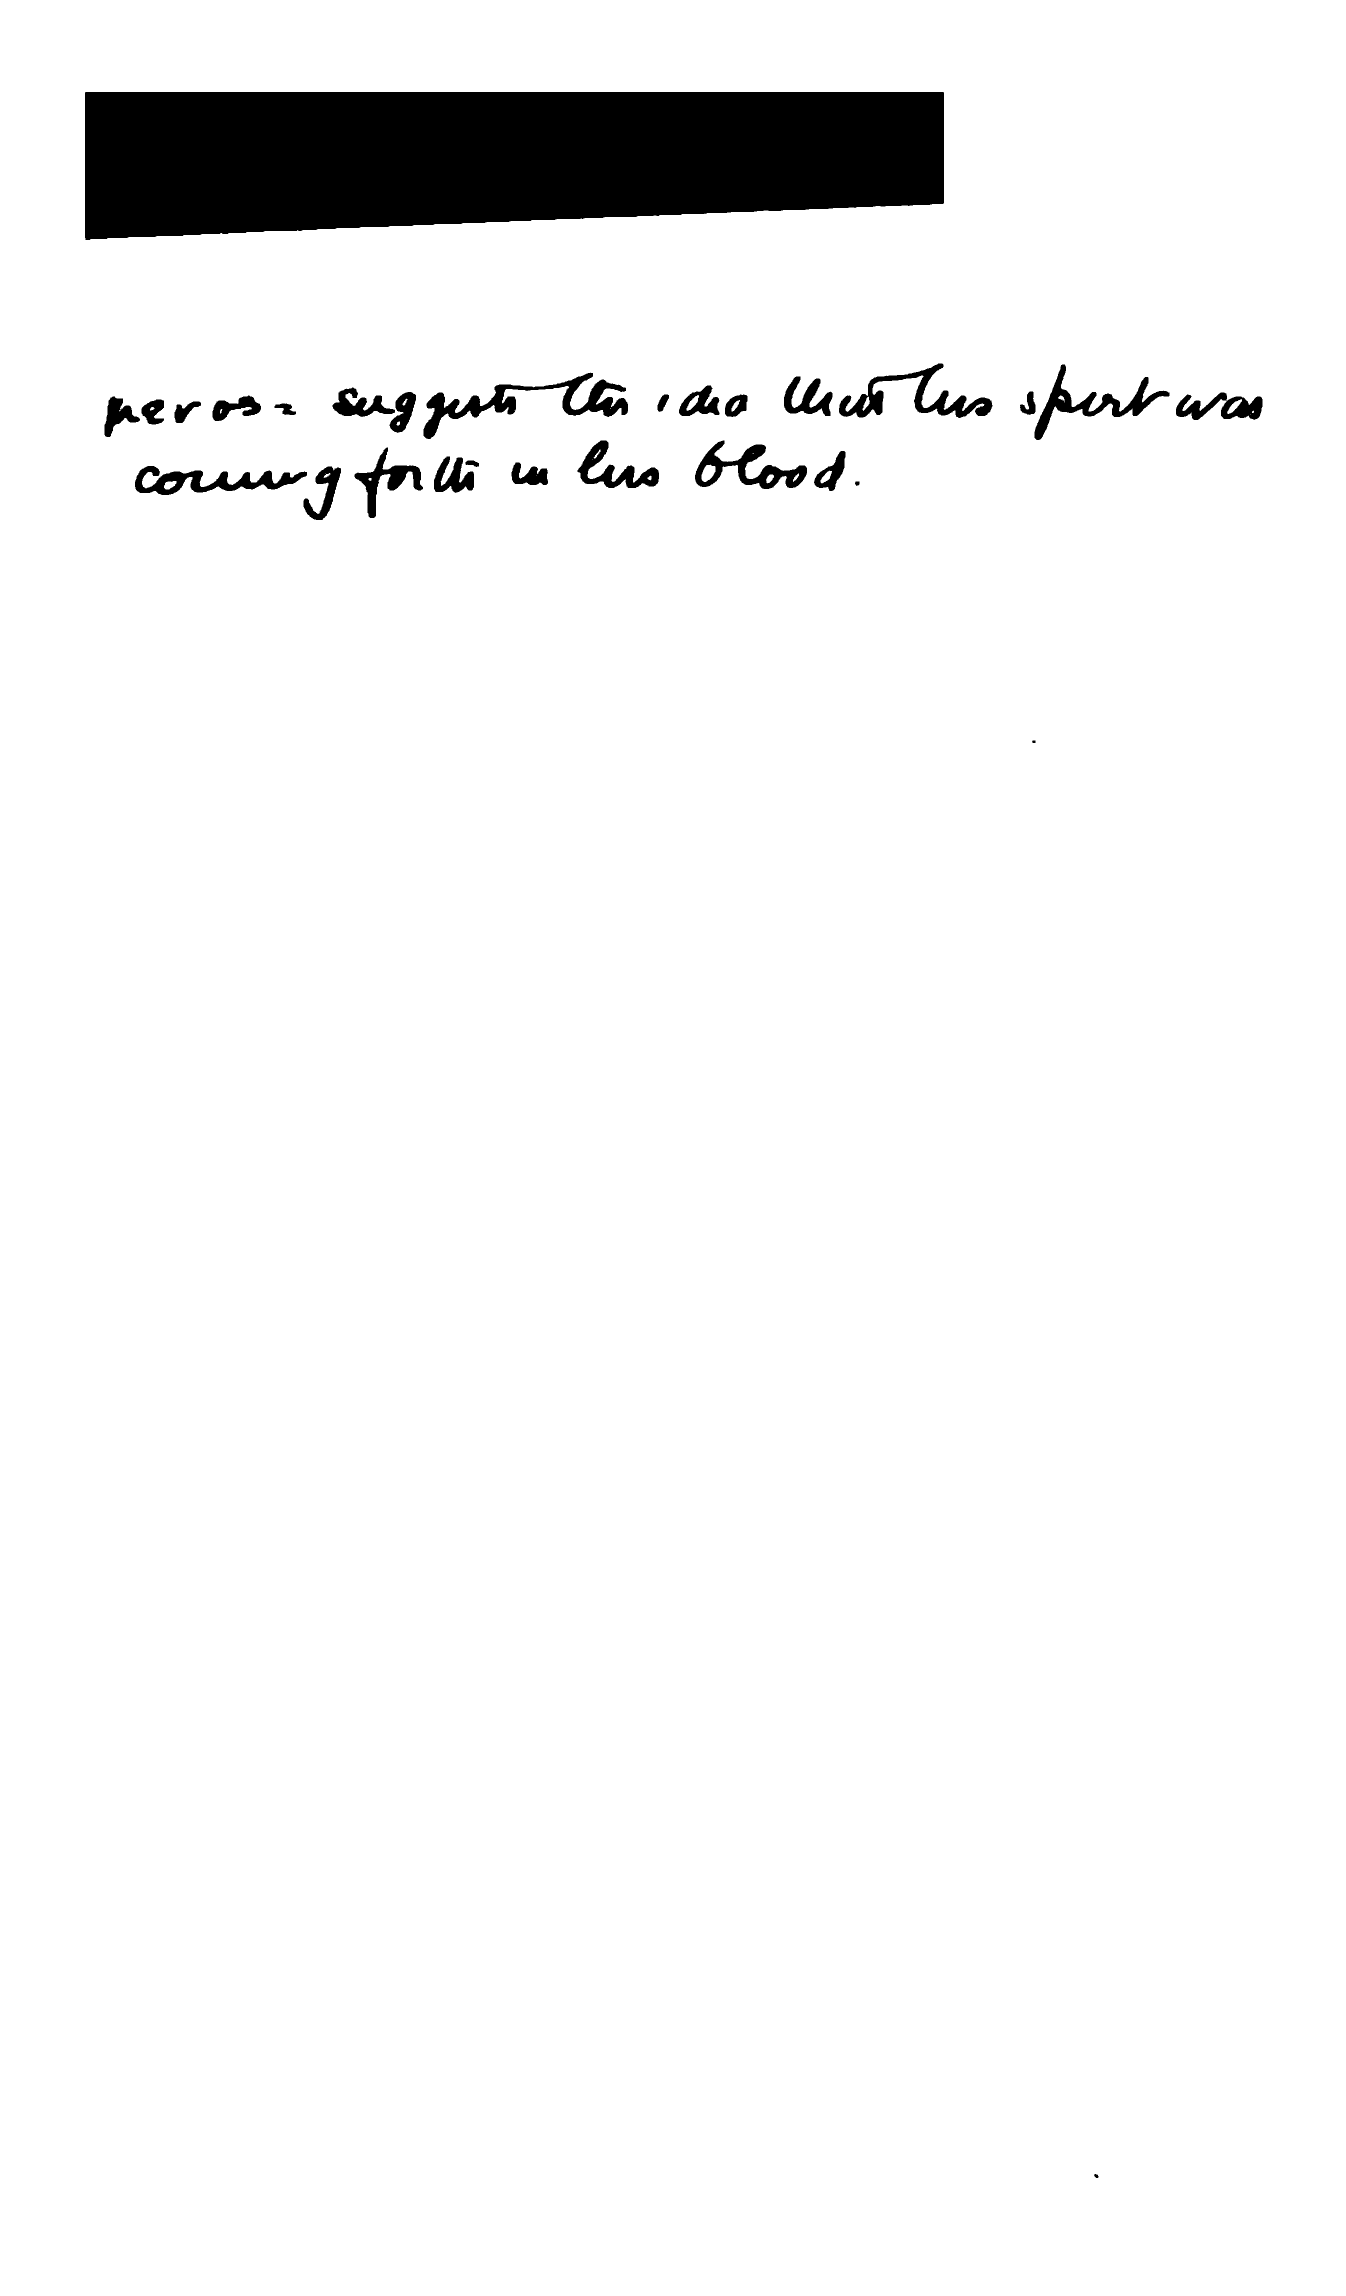 μένος = suggests the idea that his spirit was
coming forth in his blood.